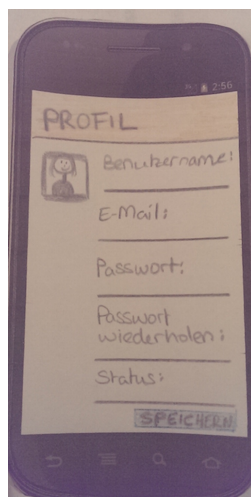 2:56
PROFIL
Benutzername:
E-Mail:
Passwort:
Passwort
wiederholen:
Status:
SPEICHERN